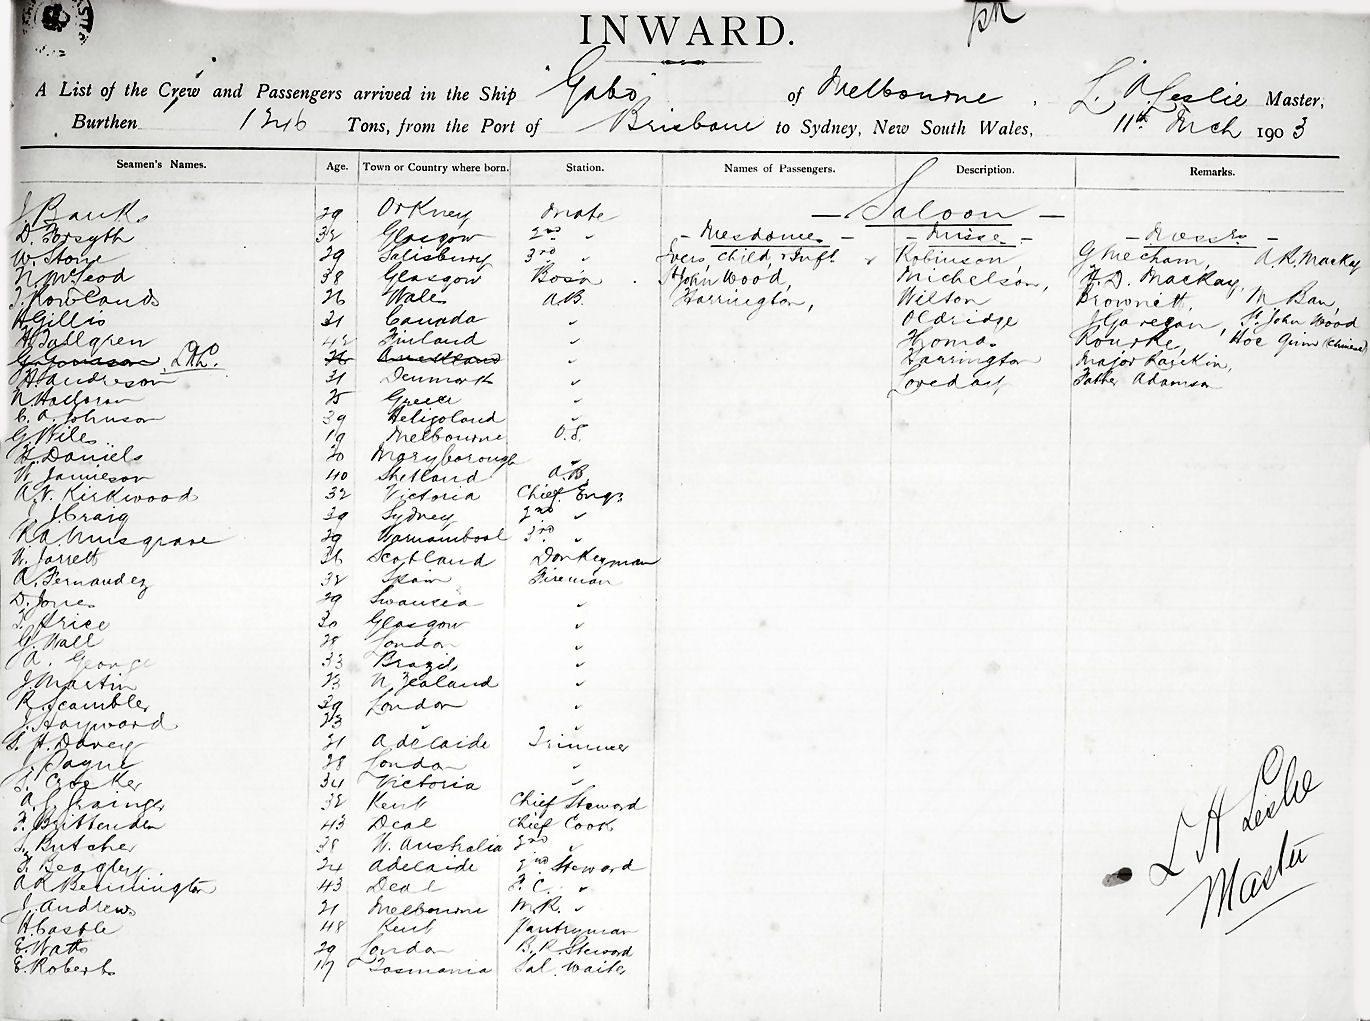 INWARD.
A List of the Crew and Passengers arrived in the Ship "Gabo" of Melbourne, L. A. Leslie Master,
Burthen 1246 Tons, from the Port of Brisbane to Sydney, New South Wales, 11th Mch 1903
Seamen's Names. Age. Town or Country where born. Station. Names of Passengers. Description. Remarks.
— Saloon —
J. Banks 29 Orkney Mate
D. Forsyth 32 Glasgow 2nd " - Mesdames - - Misses - - Messrs -
W. Stone 29 Salisbury 3rd " Evers child & Inft. Robinson G Mecham, A. R. Mackay
N. McLeod 38 Glasgow Bosn St John Wood, Michelson, H. D. Mackay,
J. Rowlands 26 Wales A.B. Harrington, Wilton Brownett, M Ban,
H Gillis 31 Canada " Oldridge J Garegan, St. John Wood
H. Tallgren 42 Finland " Thomas Rourke, Hoe Gum (Chinese)
L.A.L. " Harrington Major Rankin,
H. Andreson 31 Denmark " Loveday Father Adamson
N. Halloran 25 Greece "
C. A. Johnson 39 Heligoland "
G Wiles 19 Melbourne O.S.
H. Daniels 20 Maryborough "
W. Jamieson 40 Shetland A.B.
A. N. Kirkwood 32 Victoria Chief Engr
J. J. Craig 39 Sydney 2nd "
R A Musgrave 29 Warnambool 3rd "
W. Jarrett 36 Scotland Donkeyman
A. Fernandez 32 Spain Fireman
D. Jones 29 Swansea "
T. Price 30 Glasgow "
G. Wall 28 London "
A. George 33 Brazil "
J. Martin 23 N Zealand "
R. Scambler 39 London "
J. Hayward 23 " "
S. H. Davey 21 Adelaide Trimmer
J. Payne 28 London "
S. Crocker 34 Victoria "
A. G. Grainger 32 Kent Chief Steward
F. Brittenden 43 Deal Chief Cook
S. Butcher 38 W. Australia 2nd "
F. Beagley 24 Adelaide 2nd Steward
A R Bennington 43 Deal F. C. "
J. Andrews 21 Melbourne M. R. "
H Castle 48 Kent Pantryman
E. Watts 29 London B. R. Steward
E Roberts 17 Tasmania Sal. Waiter
L A Leslie
Master